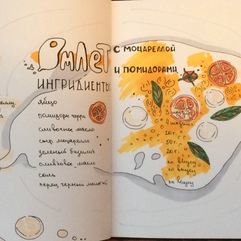 Омлет с моцареллой
и помидорами
ингридиенты:
яйцо
помидоры черри
сливочное масло
сыр моцарелла
зеленый базилик
оливковое масло
соль
перец черный молотый
по вкусу
по вкусу
по вкусу